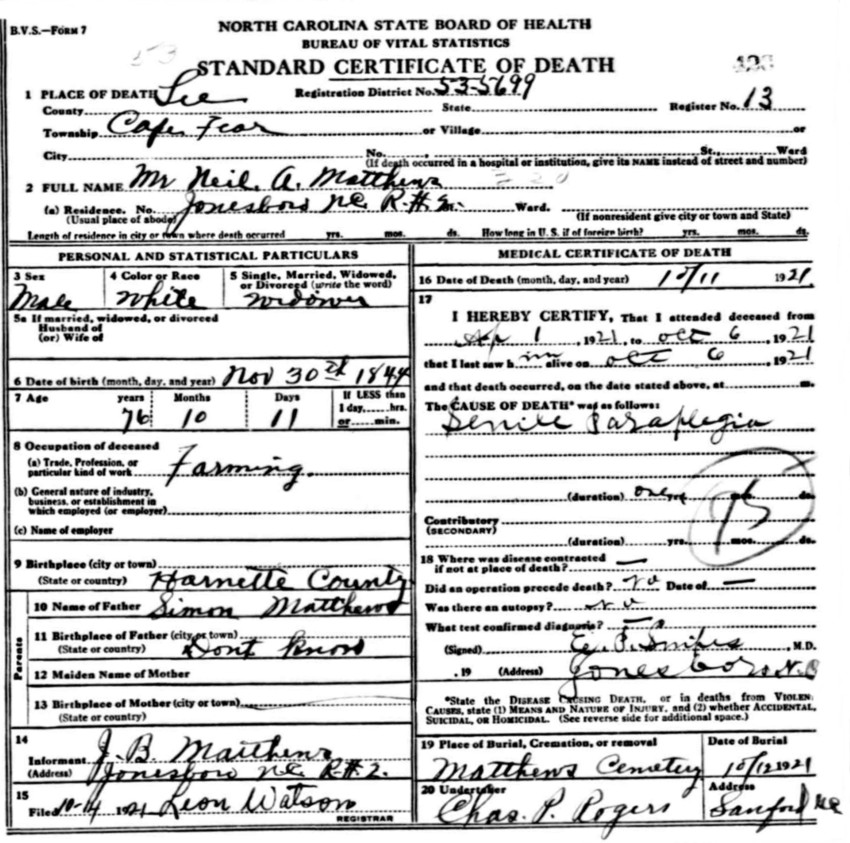 B.V.S.—FORM 7
NORTH CAROLINA STATE BOARD OF HEALTH
BUREAU OF VITAL STATISTICS
STANDARD CERTIFICATE OF DEATH
1 PLACE OF DEATH Lee Registration District No. 53-5699
County State Register No. 13
Township Cape Fear or Village or
City No. St., Ward
(If death occurred in a hospital or institution, give its NAME instead of street and number)
2 FULL NAME Mr Neil. A. Matthews
(a) Residence. No. Jonesboro N.C. R.#2. Ward.
(Usual place of abode) (If nonresident give city or town and State)
Length of residence in city or town where death occurred yrs. mos. ds. How long in U. S. if of foreign birth? yrs. mos. ds.
PERSONAL AND STATISTICAL PARTICULARS
3 Sex 4 Color or Race 5 Single, Married, Widowed, or Divorced (write the word)
Male White Widower
5a If married, widowed, or divorced
Husband of
(or) Wife of
6 Date of birth (month, day, and year) Nov 30th 1844
7 Age years Months Days If LESS than
1 day, hrs.
76 10 11 or min.
8 Occupation of deceased
(a) Trade, Profession, or
particular kind of work Farming.
(b) General nature of industry,
business, or establishment in
which employed (or employer)
(c) Name of employer
9 Birthplace (city or town)
(State or country) Harnette County
Parents
10 Name of Father Simon Matthews
11 Birthplace of Father (city or town)
(State or country) Dont Know
12 Maiden Name of Mother
13 Birthplace of Mother (city or town)
(State or country)
14
Informant J. B Matthews
(Address) Jonesboro N.C. R.#2.
15
Filed 10-14 1921 Leon Watson
REGISTRAR
MEDICAL CERTIFICATE OF DEATH
16 Date of Death (month, day, and year) 10/11 1921.
17
I HEREBY CERTIFY, That I attended deceased from
Ap 1, 1921, to Oct 6, 1921
that I last saw him alive on Oct 6 1921
and that death occurred, on the date stated above, at m.
The CAUSE OF DEATH* was as follows:
Senile Paraplegia
(duration) one yrs. mos. ds.
Contributory
(SECONDARY)
(duration) yrs. mos. ds.
18 Where was disease contracted
if not at place of death? —
Did an operation precede death? No Date of —
Was there an autopsy? No
What test confirmed diagnosis? —
(Signed) E. P. Snipes, M.D.
, 19 (Address) Jonesboro N.C
*State the DISEASE CAUSING DEATH, or in deaths from VIOLENT
CAUSES, state (1) MEANS AND NATURE OF INJURY, and (2) whether ACCIDENTAL,
SUICIDAL, OR HOMICIDAL. (See reverse side for additional space.)
19 Place of Burial, Cremation, or removal Date of Burial
Matthews Cemetery 10/12 1921
20 Undertaker Address
Chas. P. Rogers Sanford N.C